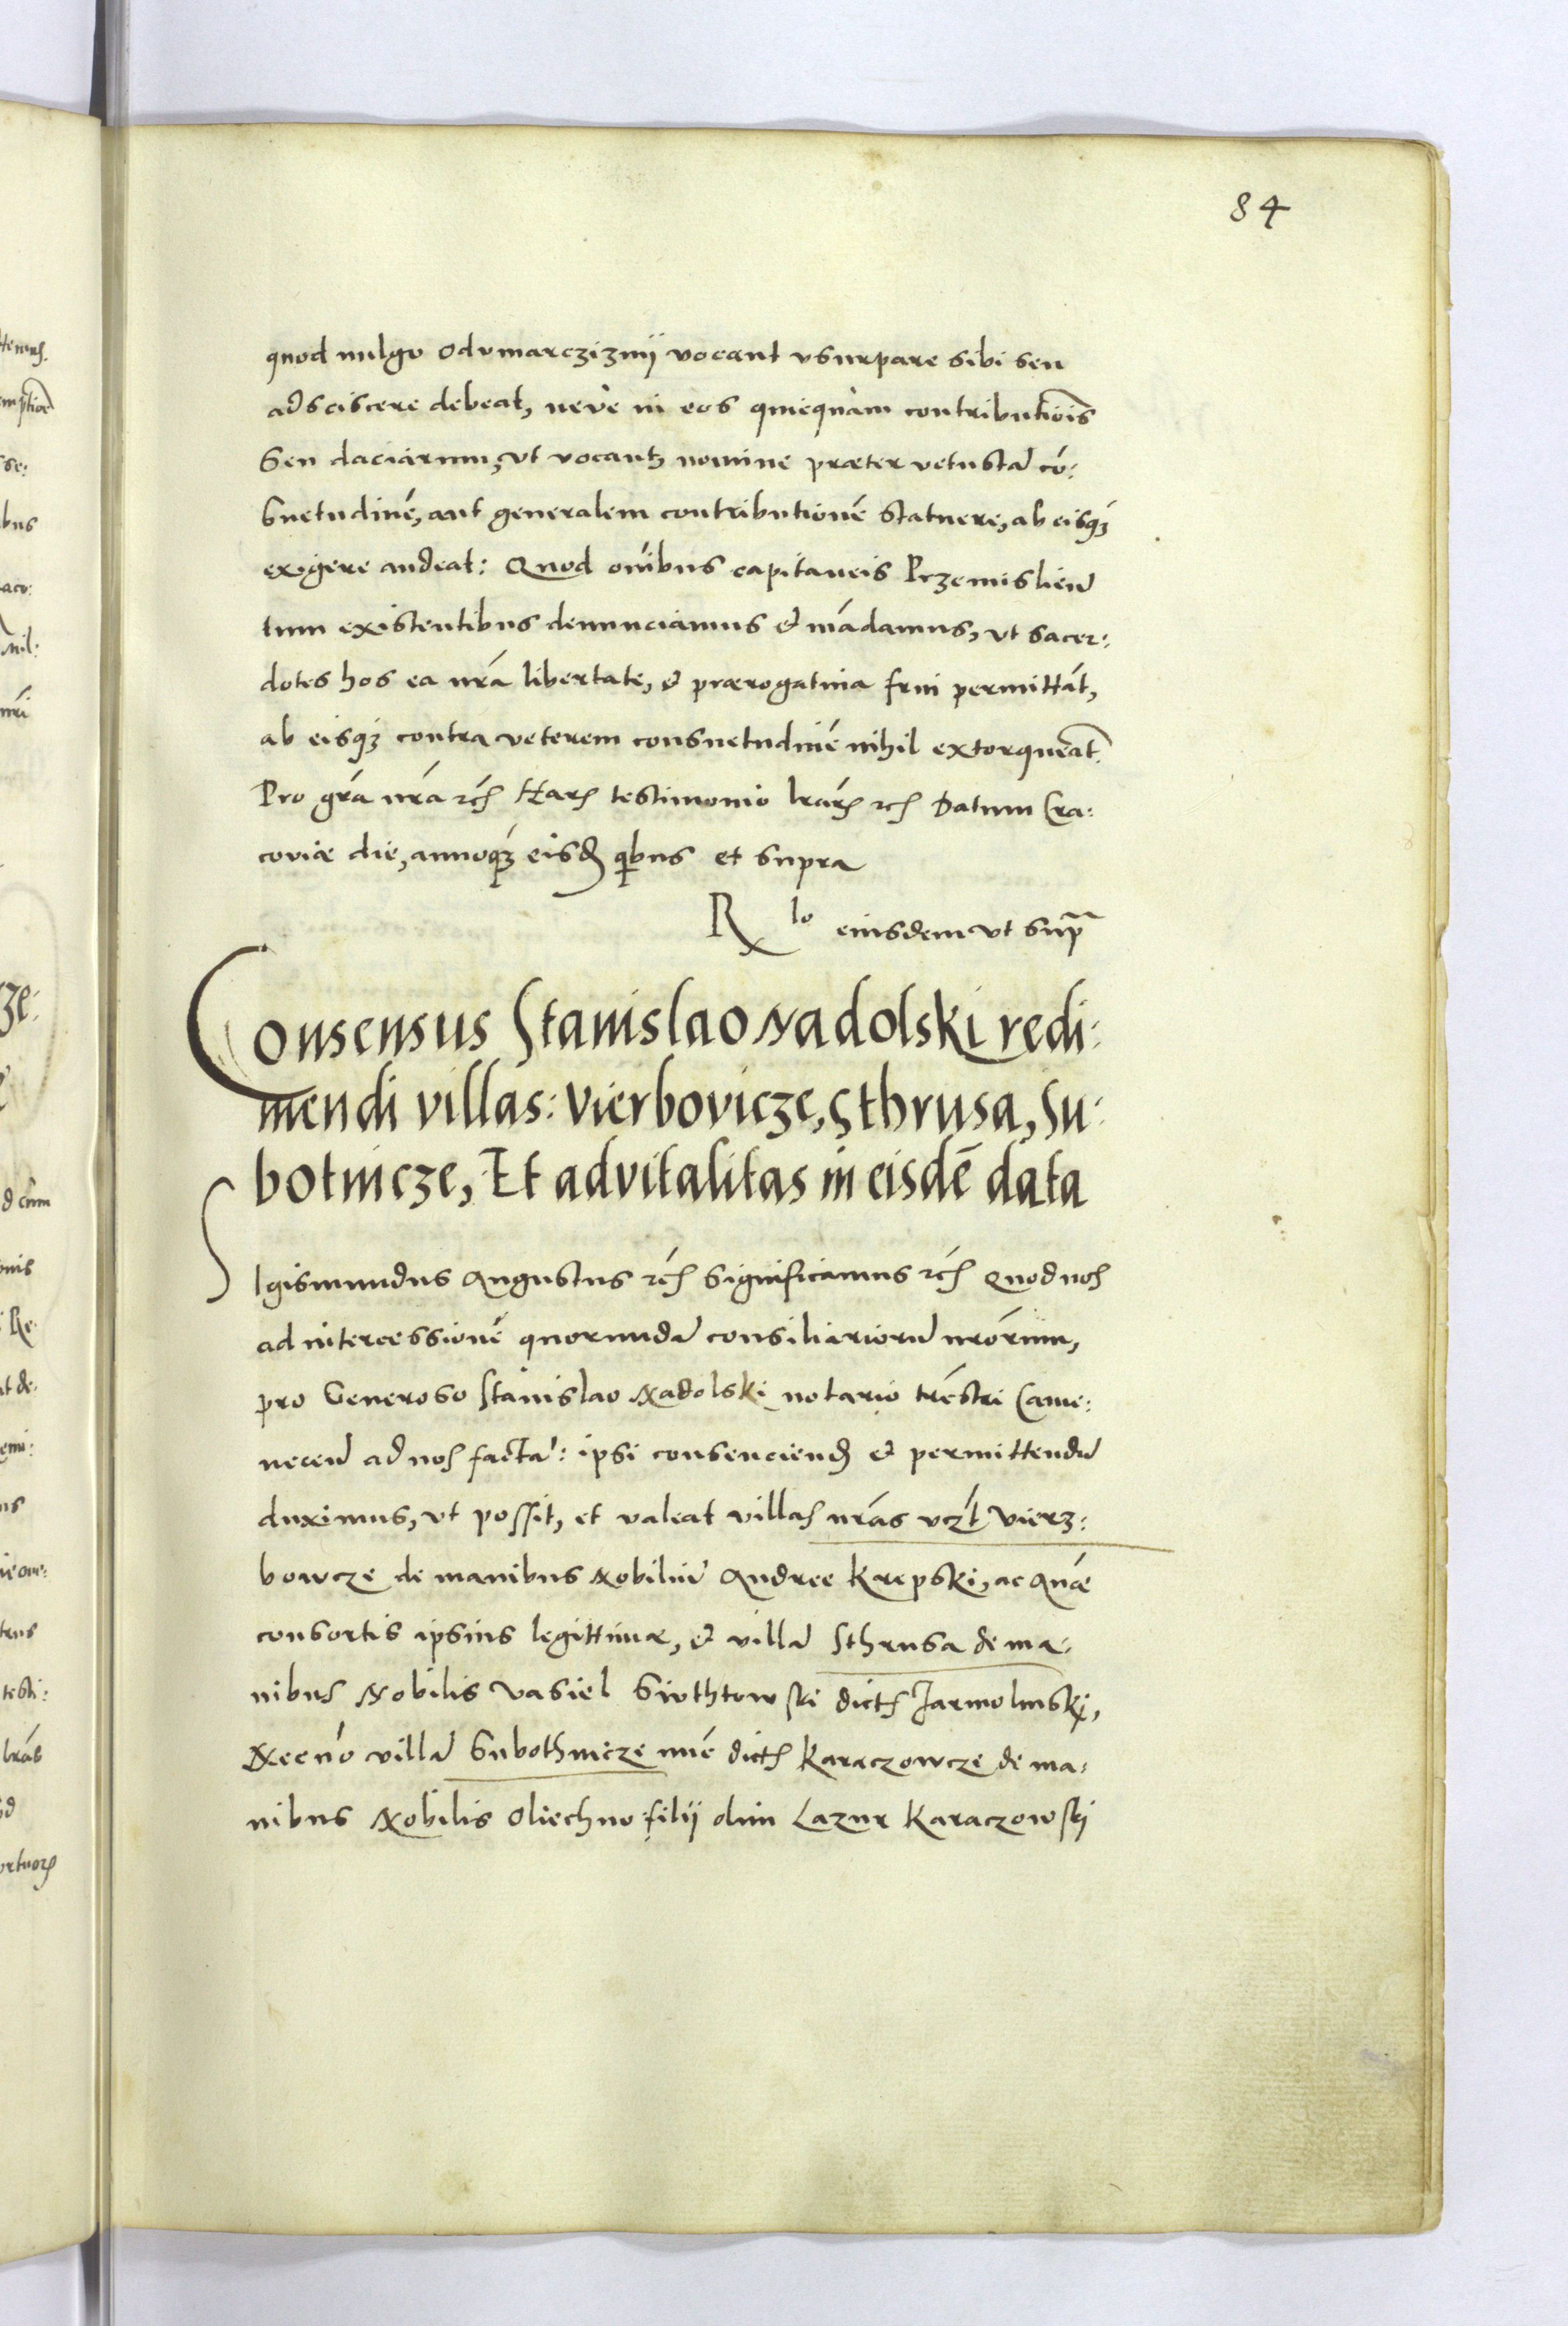 84
quod uulgo odumarcziznÿ vocant vsurpare sibi seu
adsciscere debeat, neve in eos quicquam contributiōis
Seu daciarum, vt vocantʒ nomine præter vetustā cō:
suetudinē, aut generalem contributionē statuere, ab eisqʒ
exigere audeat: Quod oībus capitaneis Przemislieñ
tum existentibus denunciamus & mādamus, vt sacer:
dotes hos ea nrā libertate, & prærogatiua frui permittāt,
ab eisqʒ contra veterem consuetudinē nihil extorqueāt
Pro grā nrā rc̄ Harʒ testimonio lrārʒ rc̄ Datum Cra:
coviæ die, annoqʒ eisdʒ qibus et supra
Rlo eiusdem vt supᵃ
Consensus Stanislao Nadolski redi:
mendi villas: Vierbovicze, Sthrusa, Su:
botnicze, Et advitalitas in eisdē data
SIgismundus Augustus rc̄ Significamus rc̄ Quod nos
ad intercessionē quorundā consiliarioru nrōrum,
pro Generoso Stanislao Nadolski notario trēstri Came:
neceñ ad nos factā: ipsi consenciendʒ & permittendu
duximus, vt possit, et valeat villas nrās vczt Vierz:
bowcze de manibus Nobiliu Andree Krepski, ac Annæ
consortis ipsius legittimæ, & villā Sthrusa de ma:
nibus Nobilis Vasiel Swothtowski dictʒ Jarmolinski,
Necnō villā Subothnicze nūc dictʒ Karaczowcze de ma:
nibus Nobilis Oliechno filÿ olim Lazur Karaczowskj